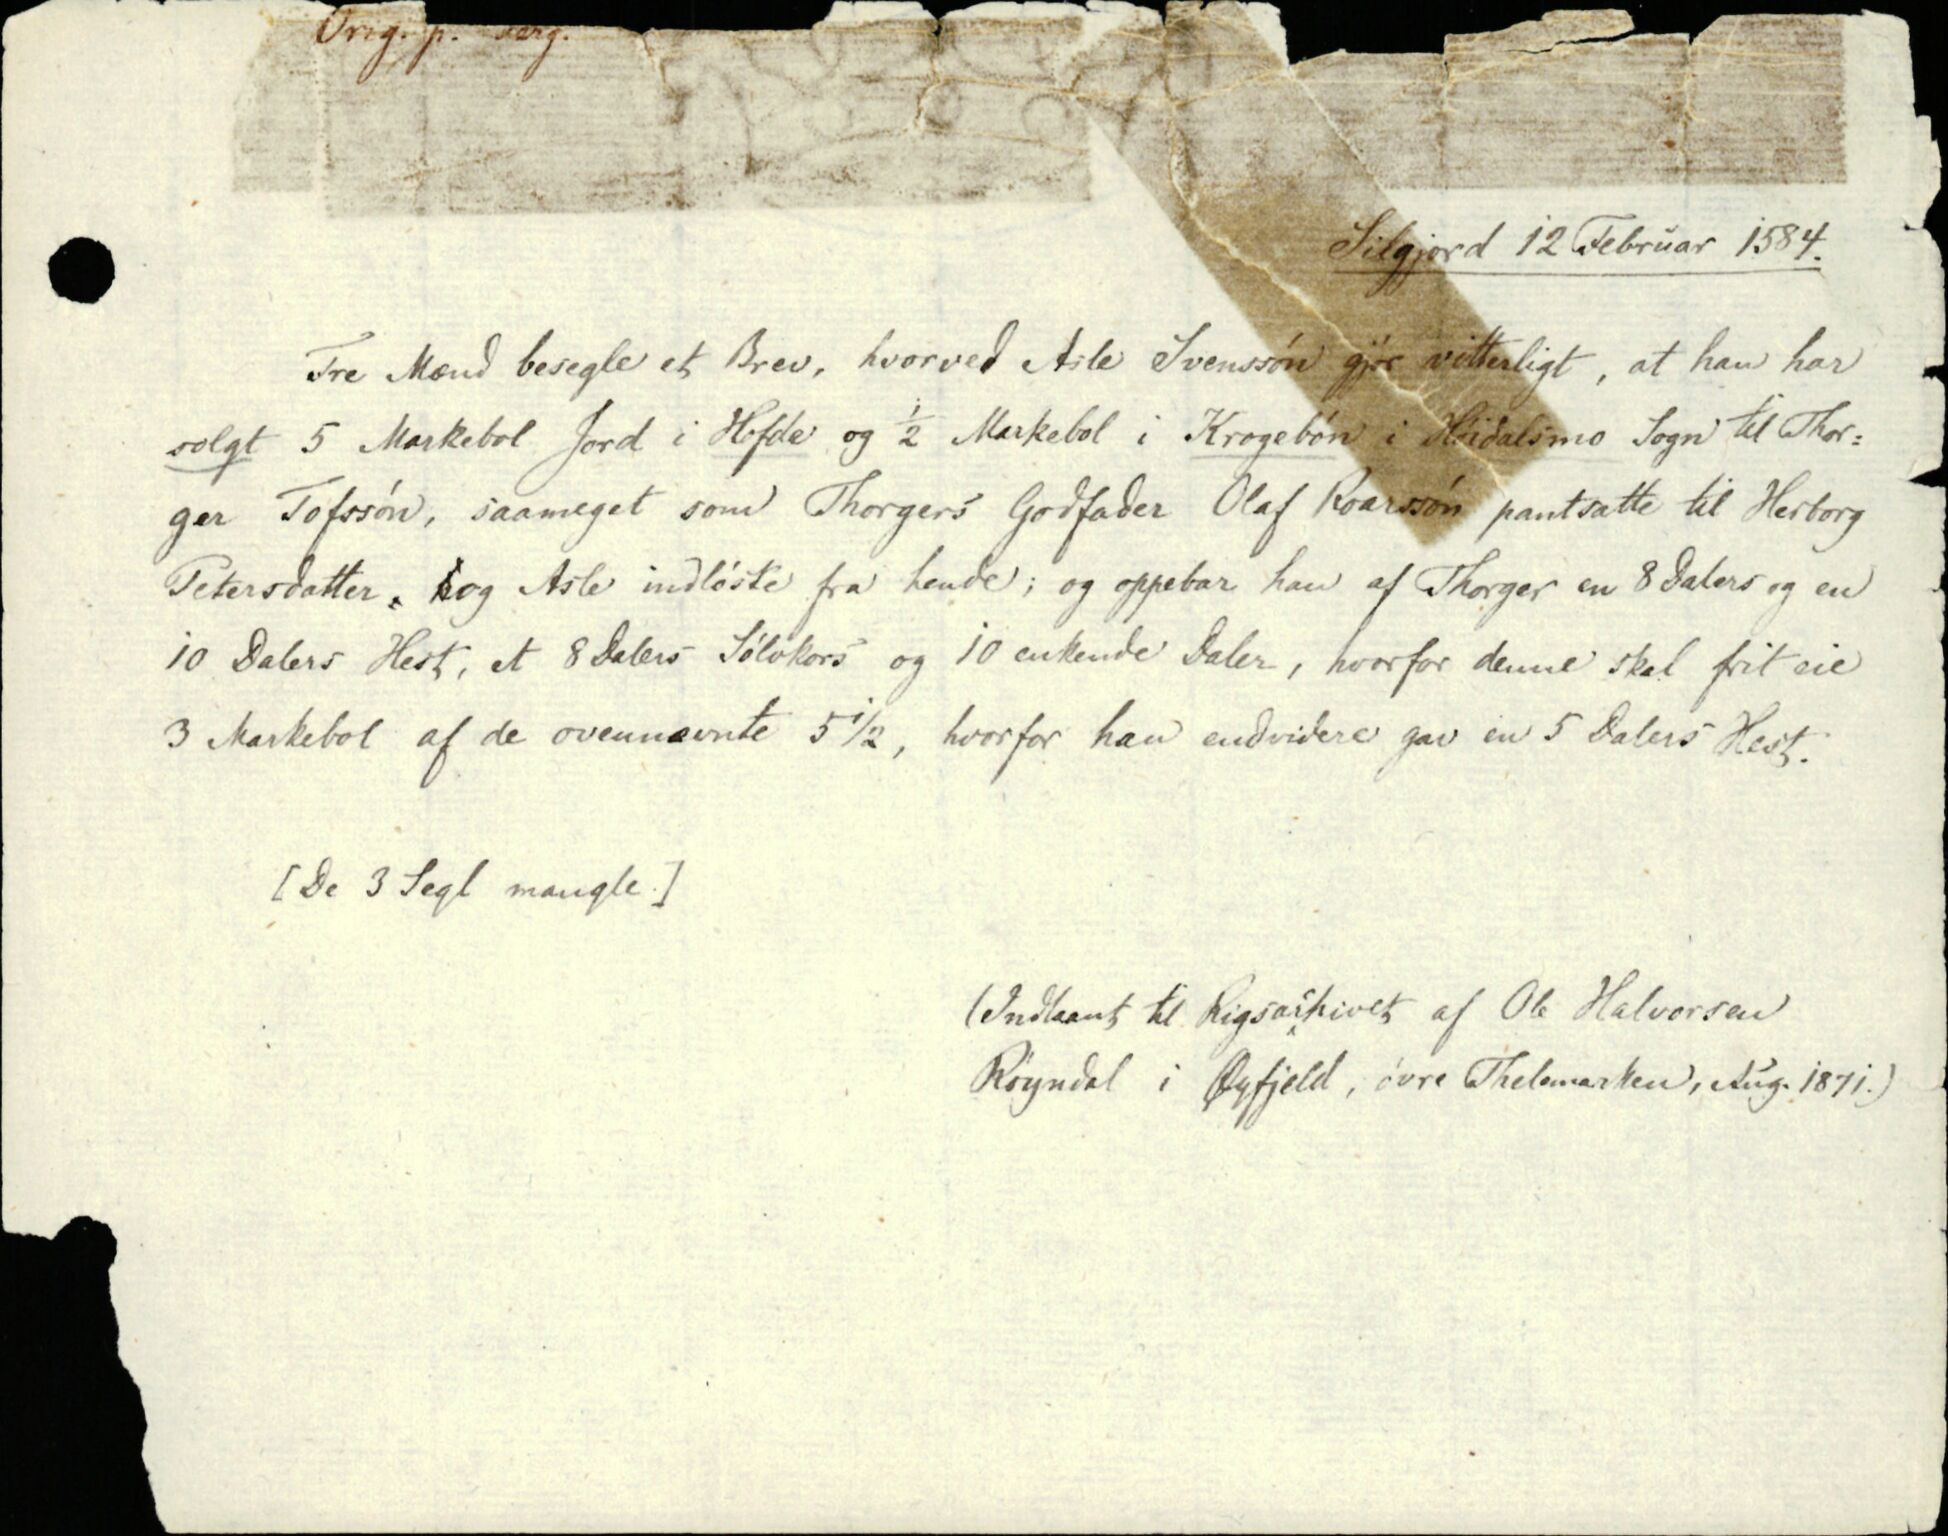 Orig. p. perg.
Silgjord 12 Februar 1584.
Tre Mænd besegle et Brev, hvorved Asle Svenssón gjór vitterligt, at han har
solgt 5 Markebol Jord i Hofde og ½ Markebol i Krogebón i Hóidalsmo Sogn til Thor=
ger Tofssón, saameget som Thorgers Godfader Olaf Roarssón pantsatte til Herborg
Petersdatter, og Asle indlóste fra hende; og oppebar han af Thorger en 8 Dalers og en
10 Dalers Hest, et 8 Dalers Sólvkors og 10 enkende Daler, hvorfor denne skal frit eie
3 Markebol af de ovennævnte 5 1/2, hvorfor han endvidere gav en 5 Dalers Hest.
[De 3 Segl mangle.]
(Indlaant til Rigsarkivet af Ole Halvorsen
Róyndal i Øyfjeld, óvre Thelemarken, Aug. 1871.)